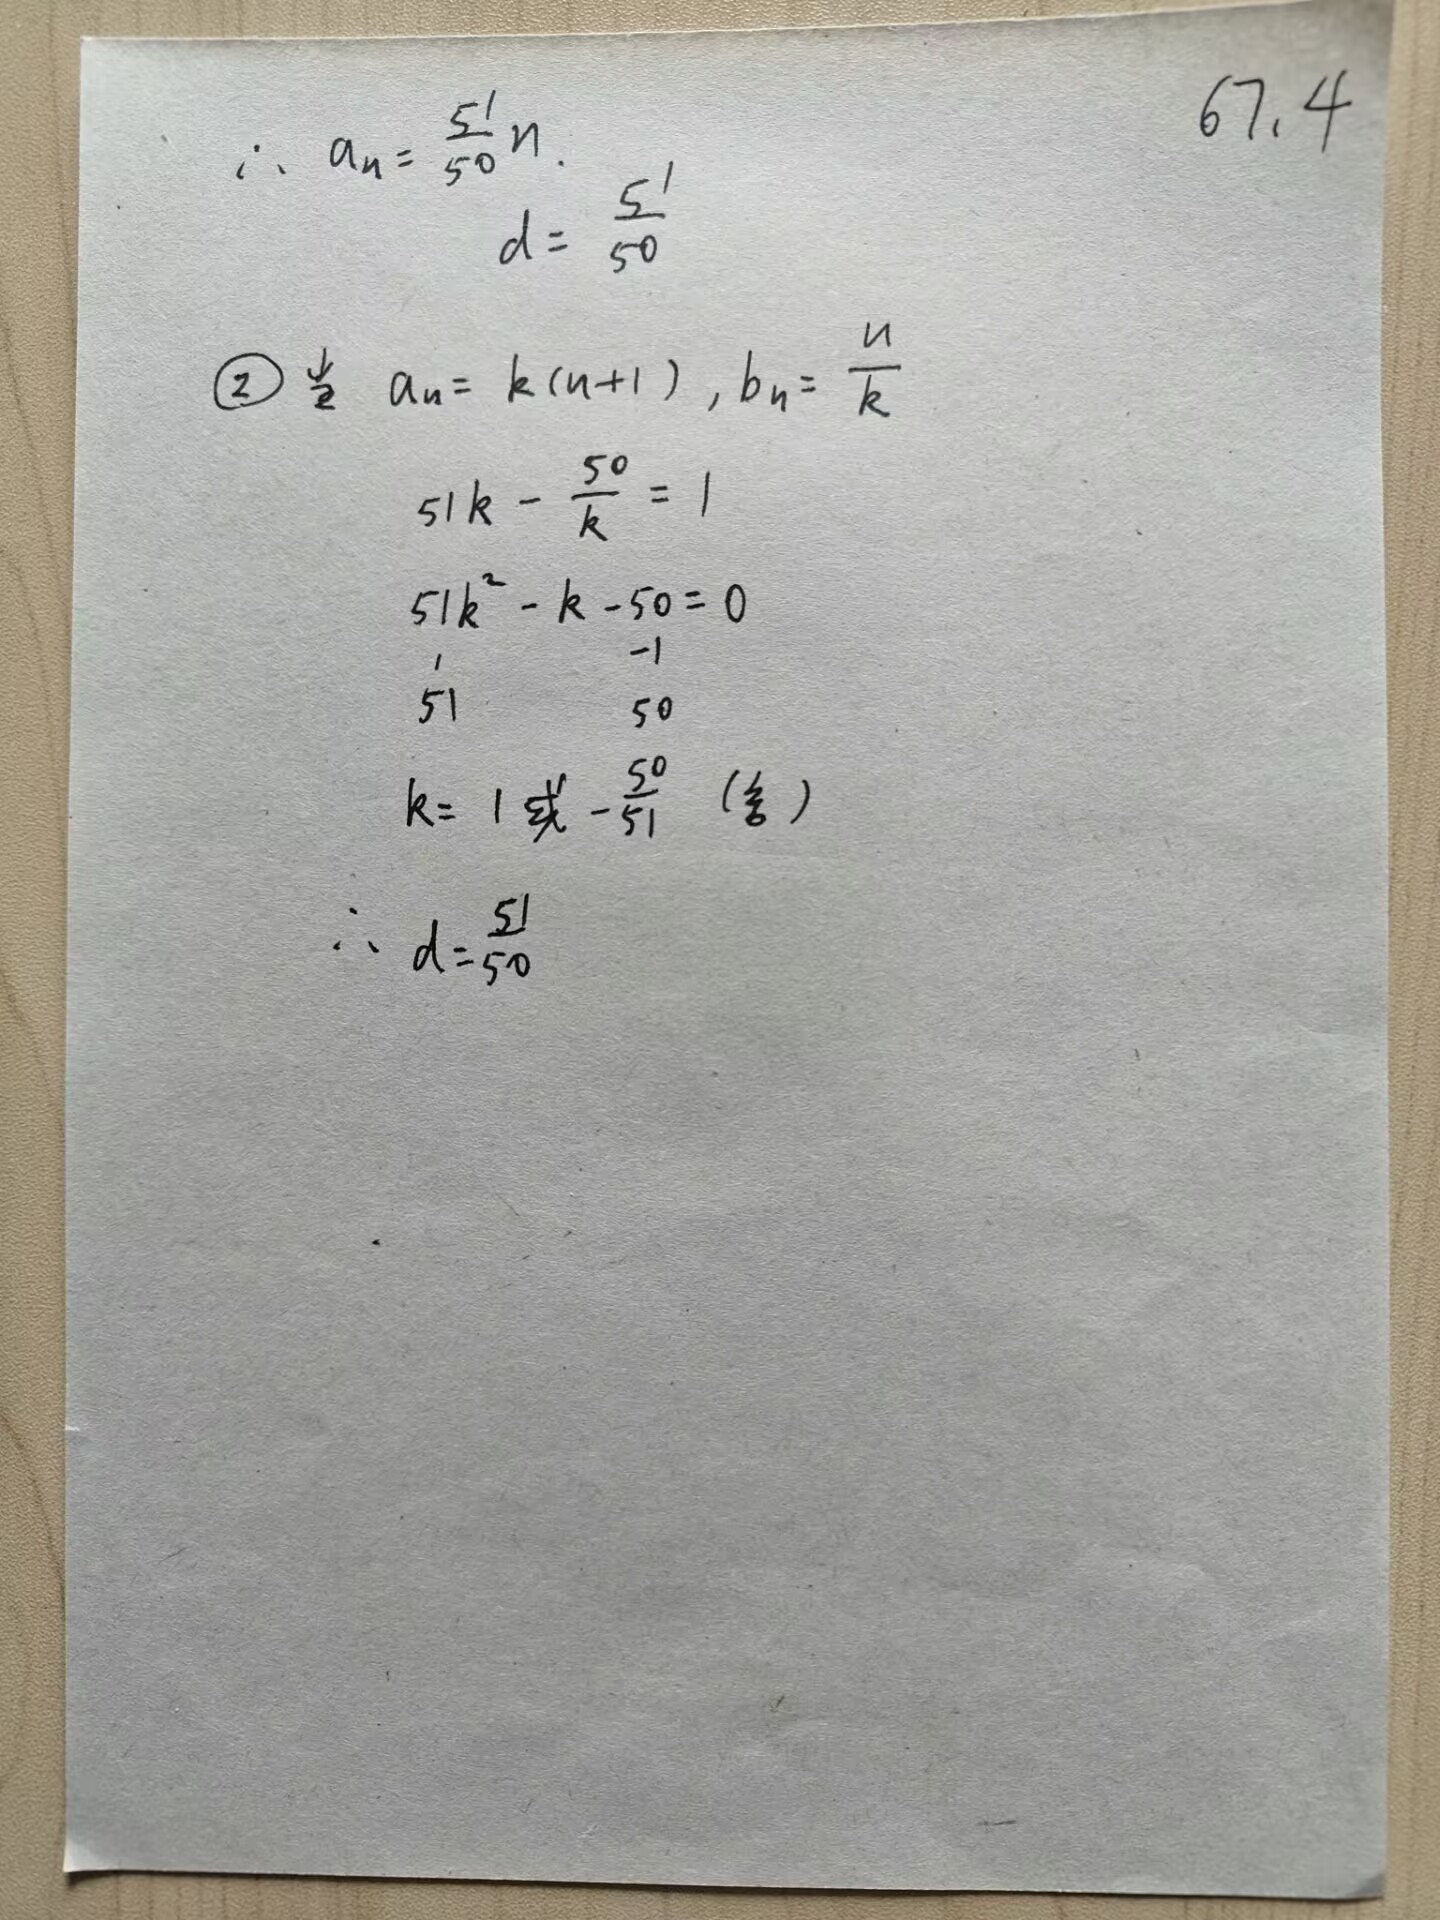 67.4
∴ aₙ = 51/50 n.
d = 51/50
② 当 aₙ = k(n+1), bₙ = n/k
51k - 50/k = 1
51k² - k - 50 = 0
1 -1
51 50
k = 1 或 - 50/51 (舍)
∴ d = 51/50